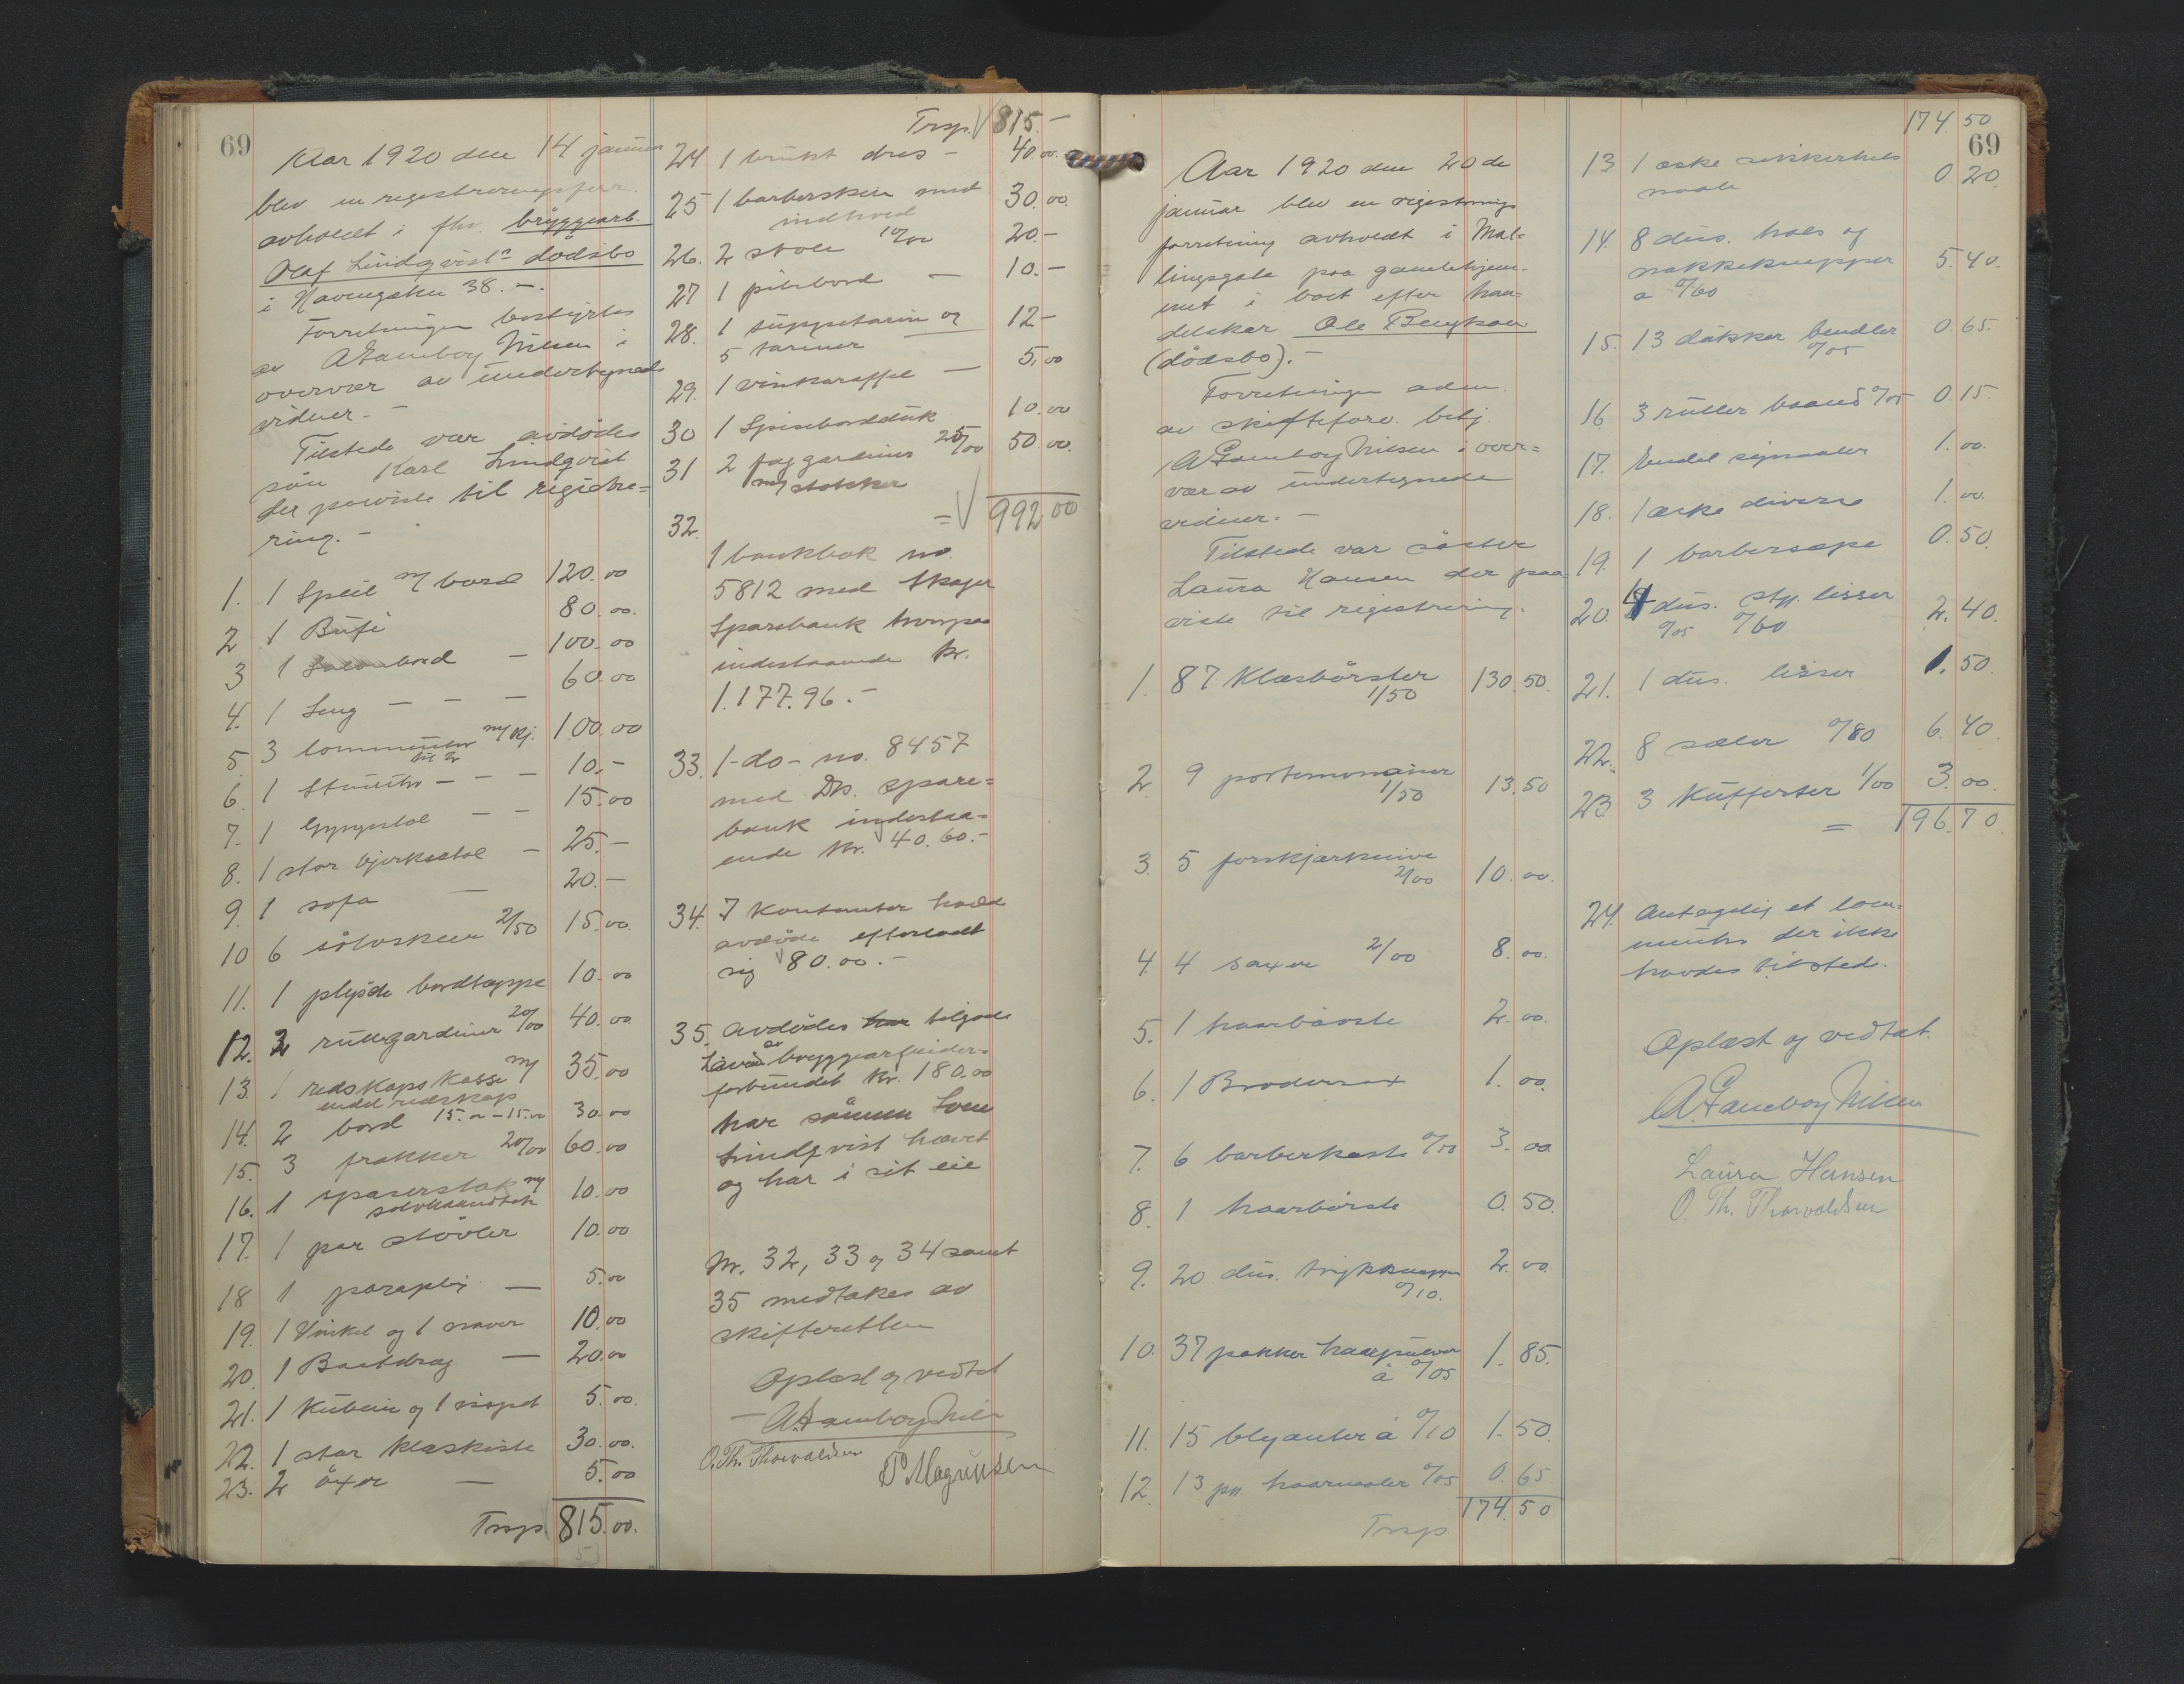 69
Aar 1920 den 14 januar
blev en registreringsforr.
avholdt i fhv. bryggearb.
Olaf Lindqvists dödsbo
i Havengaten 38. -.
Forretningen bestyrtes
av A Gamborg Nilsen i
overvær av undertegnede
vidner. -
Tilstede var avdödes
sön Karl Lindqvist
der paaviste til registre=
ring. -
1. 1 Speil m/ bord 120.00
2 1 Büfe 80.00.
3 1 Salonbord - 100.00
4. 1 Seng - - - 60.00
5 3 lommeuhr m/ kj. 100.00
6. 1 Stueuhr - - - 10.-
7. 1 Gyngestol - - 15.00
8. 1 stor bjerkestol - 25.-
9. 1 sofa - 20.-
10 6 sölvskeer 2/50 15.00.
11. 1 plyschs bordteppe 10.00
12. 2 rullegardiner 20/00 40.00
13. 1 redskapskasse m/ 35.00
endel redskap
14. 2 bord 15.00-15.00 30.00
15. 3 frakker 20/00 60.00
16. 1 spaserstok m/ 10.00
solvhaandtak
17. 1 par stövler 10.00
18 1 paraply - 5.00
19. 1 Vinkel og 1 naver 10.00
20. 1 Baatdrag - 20.00
21. 1 Kubein og 1 5.00.
22. 1 stor klæskiste 30.00.
23. 2 öxer - 5.00
Trsp. 815.00.
Trsp. 815.-
24 1 brukt dres - 40.00.
25 1 barberskrin med 30.00.
indhold
26. 2 stole 10/00 20.-
27 1 pitebord - 10.-
28. 1 suppeterin og 12.-
5 tariner -
29. 1 vinkaraffel - 5.00
30 1 Spisebordduk 10.00
31 2 fag gardiner 25/00 50.00.
m/ stokker
= 992.00
32.
1 bankbok no.
5812 med Skager
Sparebank hvorpaa
indestaaende kr.
1.177.96.-
33. 1 -do- no. 8457
med Ds. spare=
bank indestaa-
ende kr. 40.60.-
34. I kontanter havde
avdöde efterladt
sig 80.00.-
35. Avdödes har tilgode
av bryggearbeider-
forbundet kr. 180.00
har sönnen Sven
Lindqvist hævet
og har i sit eie
Nr. 32, 33 og 34 samt
35 medtakes av
skifteretten
Oplæst og vedtat
- A. Gamborg Nilsen
O. Th. Thorvaldsen
P. Magnussen
69
Aar 1920 den 20de
januar blev en registrerings
forretning avholdt i Møl=
lingsgate paa gamlehjem-
met i boet efter han=
delskar Ole Bengtson
(dödsbo). -
Forretningen adm.
av skifteforv. betj.
A Gamborg Nilsen i over=
vær av undertegnede
vidner. -
Tilstede var söster
Laura Hansen der paa
viste til registrering.
1. 87 Klæsbörster 130.50.
1/50
2. 9 portemonaier 13.50
1/50
3. 5 forskjærknive 10.00.
2/00
4 4 saxer 2/00 8.00.
5. 1 haarbörste 2.00.
6. 1 Brodersax 1.00.
7. 6 barberkoste 0/50 3.00
8. 1 haarbörste 0.50.
9. 20 dus. trykknapper 2.00.
0/10.
10. 37 pakker haarpulver 1.85.
à 0/05
11. 15 blyanter à 0/10 1.50.
12. 13 pk. haarnaaler 0/05 0.65
Trsp. 174.50
174.50
13 1 æske sikkerhets 0.20.
naale
14. 8 dus. hals og
nakkeknapper 5.40.
a 0/60
15. 13 dukker bendler 0.65.
0/05
16. 3 ruller baand 0/05 0.15.
17. Endel synaaler 1.00.
18. 1 æske diverse 1.00.
19. 1 barbersæpe 0.50.
20. 4 dus. stk. lisser 2.40.
0/05 0/60
21. 1 dus. lisser 1.50.
22. 8 sæler 0/80 6.40.
23 3 Kufferter 1/00 3.00.
= 196.70.
24. Antagelig et lom-
meuhr der ikke
havdes tilstede.
Oplæst og vedtat.
A. Gamborg Nilsen
Laura Hansen
O. Th. Thorvaldsen